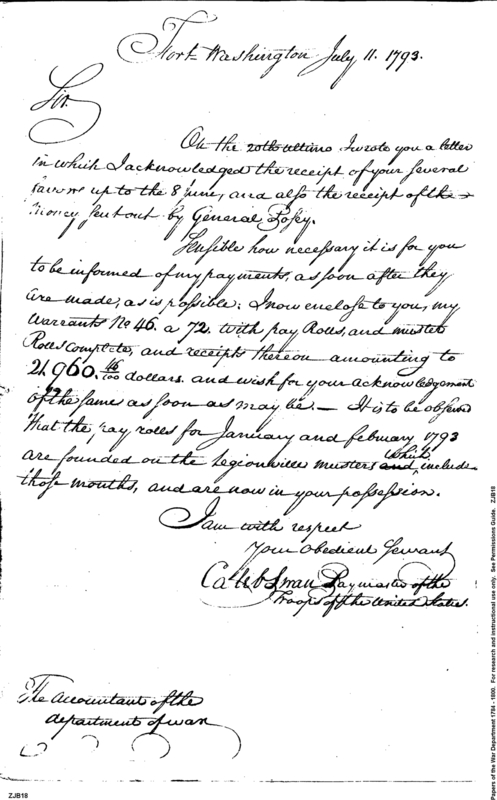 Fort Washington July 11. 1793.
Sir.
On the 20th ultimo I wrote you a letter
in which I acknowledged the receipt of your several
favors up to the 8 June, and also the receipt of the
money sent out by General Posey.
Sensible how necessary it is for you
to be informed of my payments, as soon after they
are made, as is possible; I now enclose to you, my
Warrants No 46. a 72. with pay Rolls, and muster
Rolls complete, and receipts thereon amounting to
21,960. 46/100 dollars. and wish for your acknowledgement
of the same as soon as may be. — It is to be observed
that the pay rolls for January and february 1793
are founded on the Legionville musters which include
those months, and are now in your possession.
I am with respect
Your Obedient Servant
Caleb Swan Paymaster of the
Troops of the United States.
The Accountant of the
department of war
ZJB18
Papers of the War Department 1784 - 1800. For research and instructional use only. See Permissions Guide. ZJB18